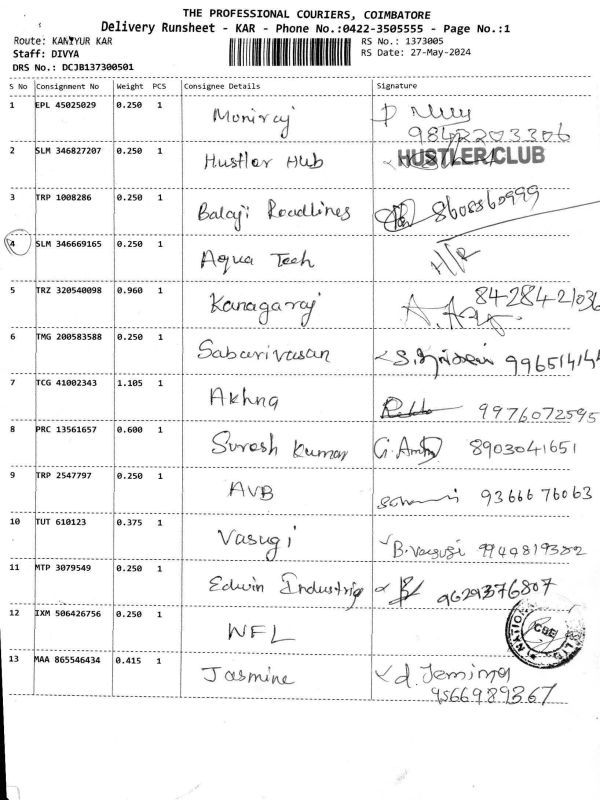 THE PROFESSIONAL COURIERS, COIMBATORE
Delivery Runsheet - KAR - Phone No.:0422-3505555 - Page No.:1
Route: KANIYUR KAR
RS No.: 1373005
Staff: DIVYA
RS Date: 27-May-2024
DRS No.: DCJB137300501
S No Consignment No Weight PCS Consignee Details Signature
1 EPL 45025029 0.250 1 Moniraj
9842203306
2 SLM 346827207 0.250 1 Hustler Hub HUSTLER CLUB
3 TRP 1008286 0.250 1 Balaji Roadlines 8608860999
4 SLM 346669165 0.250 1 Aqua Tech H/R
5 TRZ 320540098 0.960 1 Kanagaraj 8428421036
6 TMG 200583588 0.250 1 Sabarivasan 996514144
7 TCG 41002343 1.105 1 Akhna 9976072595
8 PRC 13561657 0.600 1 Suresh Kumar 8903041651
9 TRP 2547797 0.250 1 AVB 9366676063
10 TUT 610123 0.375 1 Vasugi B. Vasugi 9949819382
11 MTP 3079549 0.250 1 Edwin Industrig 9629376807
12 IXM 506426756 0.250 1 WFL CBE
13 MAA 865546434 0.415 1 Jasmine d. Jemima
9566989367